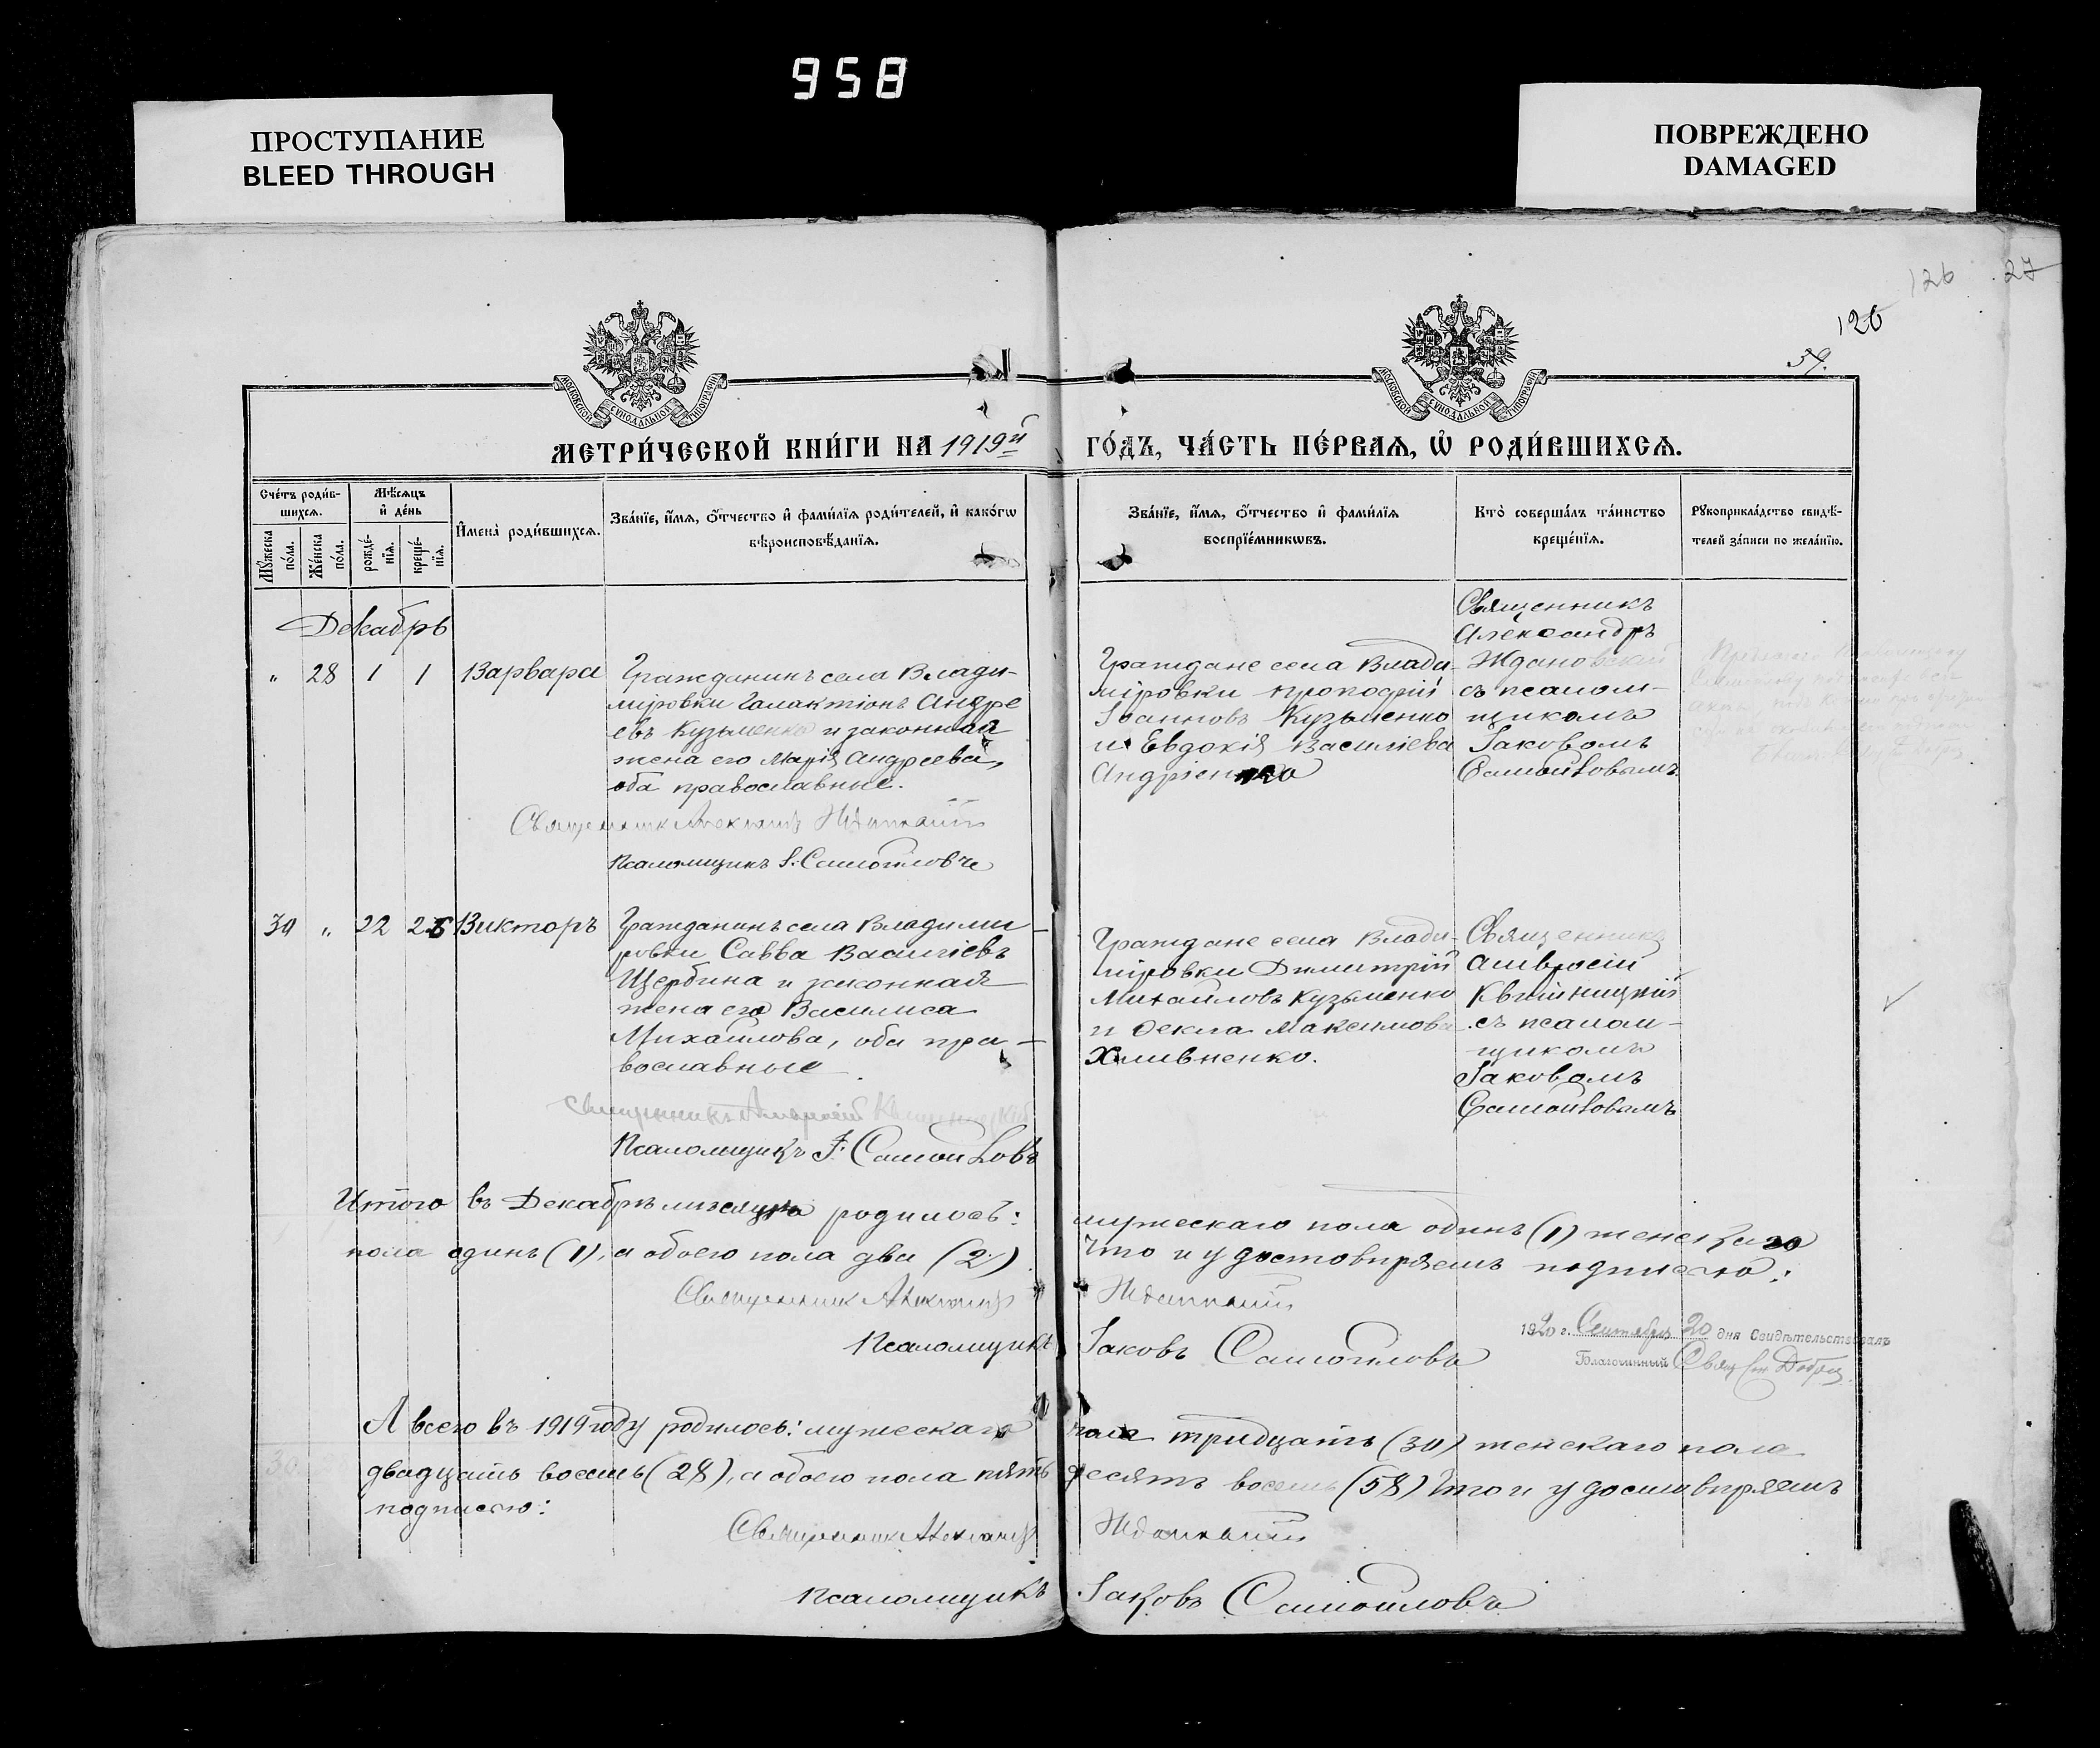 958
ПРОСТУПАНИЕ
BLEED THROUGH
ПОВРЕЖДЕНО
DAMAGED
126
27
126
59.
МОСКОВСКОЙ СѴНОДАЛЬНОЙ ТИПОГРАФІИ
МОСКОВСКОЙ СѴНОДАЛЬНОЙ ТИПОГРАФІИ
МЕТРИ́ЧЕСКОЙ КНИ́ГИ НА 1919й ГО́ДЪ, ЧА́СТЬ ПЕ́РВАѦ, Ѡ҆ РОДИ́ВШИХСѦ.
Сче́тъ роди́в-
шихсѧ.
Мѹ́жеска по́ла.
Же́нска по́ла.
Мѣ́сѧцъ
и҆ де́нь
рожде́-нїѧ.
креще́-нїѧ.
И҆мена̀ роди́вшихсѧ.
Зва́нїе, и҆́мѧ, ѻ҆́тчество и҆ фами́лїѧ роди́телей, и҆ како́гѡ
вѣроисповѣ́данїѧ.
Зва́нїе, и҆́мѧ, ѻ҆́тчество и҆ фами́лїѧ
воспрїе́мникѡвъ.
Кто̀ соверша́лъ та́инство
креще́нїѧ.
Рѹкоприкла́дство свидѣ́-
телей за́писи по жела́нїю.
Декабрь
" 28 1 1 Варвара
Гражданинъ села Влади-
міровки Галактіонъ Андре
евъ Кузьменко и законная
жена его Марія Андреева,
оба православные.
Священникъ Александръ Ждановскій
Псаломщикъ І. Самойловъ
Граждане села Влади-
міровки
Іоанновъ Кузьменко
и Евдокія Василіева
Андріенко
Священникъ
Александръ
Ждановскій
съ псалом-
щикомъ
Іаковомъ
Самойловымъ
30 " 22 26 Викторъ
Гражданинъ села Владими
ровки Савва Василіевъ
Щербина и законная
жена его Василиса
Михайлова, оба пра-
вославные
Священникъ Амвросій
Псаломщикъ І. Самойловъ
Граждане села Влади-
міровки Димитрій
Михайловъ Кузьменко
и Фекла Максимова
Хливненко.
Священникъ
Амвросій
Квитницкій
съ псалом-
щикомъ
Іаковомъ
Самойловымъ
Итого въ Декабрѣ мѣсяцѣ родилось: мужескаго пола одинъ (1) женскаго
пола одинъ (1), а обоего пола два (2) Что и удостовѣряемъ подписью:
Священникъ Александръ Ждановскій
Псаломщикъ Іаковъ Самойловъ
1920 г. Сентября 20 дня Свидѣтельствовалъ
Благочинный Свящ.
А всего въ 1919 году родилось: мужескаго пола тридцать (30) женскаго пола
двадцать восемь (28), а обоего пола пятьдесятъ восемь (58) Что и удостовѣряемъ
подписью:
Священникъ Александръ Ждановскій
Псаломщикъ Іаковъ Самойловъ